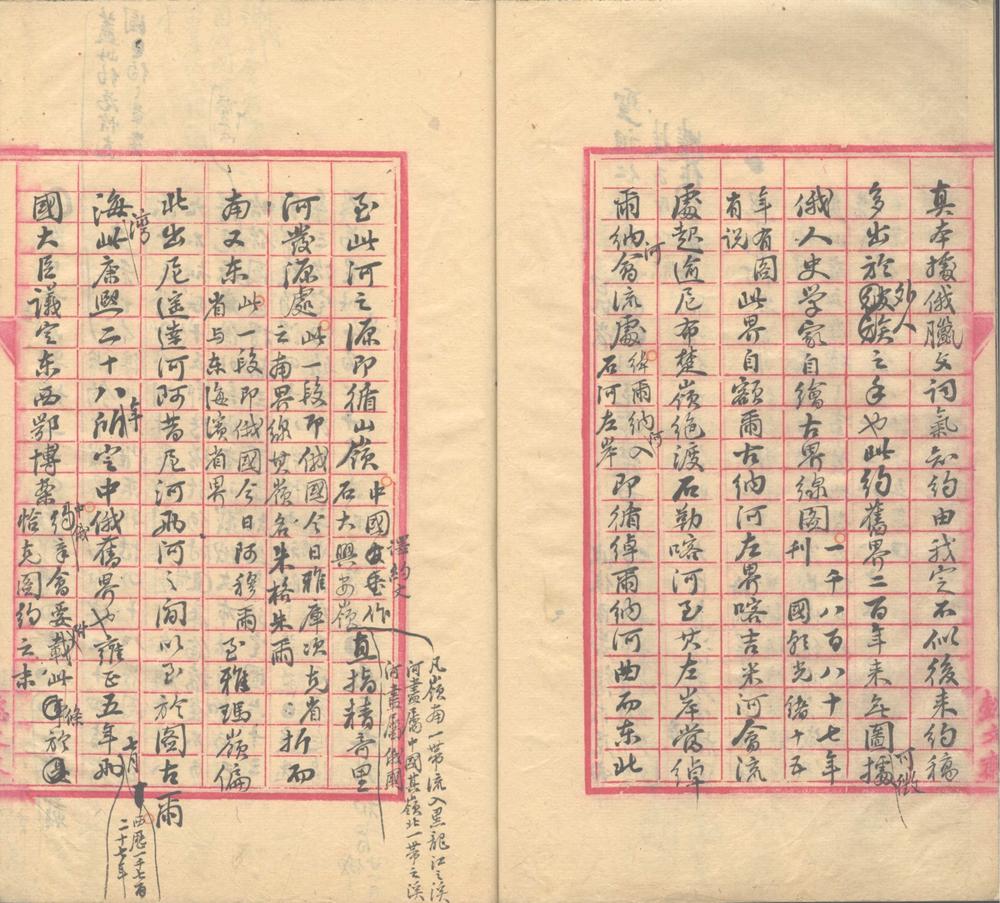 真本據俄臘文詞氣知約由我定不似後來約稿
多出於外人之手也此約舊界二百年來無圖可徵據
俄人史学家自繪古界線圖刊一千八百八十七年國朝光緒十五
年有圖
有說此界自額爾古納河左界喀吉米河會流
處起逾尼布楚嶺絶渡石勒喀河至其左岸當綽
爾納河會流處綽爾納河入石河左岸即循綽爾納河曲而东此
至此河之源即循山嶺中國譯約文作石大興安嶺直指精奇里
凡嶺南一帶流入黑龍江之溪
河盡屬中國其嶺北一帶之溪
河盡屬俄國
河發源處此一段即俄國今日雅庫次克省
云南界線其嶺名朱格朱爾折而
南又东此一段即俄國今日阿穆爾
省与东海濱省界至雅瑪嶺偏
北出尼滿達河阿昔尼河两河之间以至於图古爾
海湾此康熙二十八年所定中俄舊界也雍正五年
七月西歷一千七百
二十七年两
國大臣議定东西鄂博蒙
中俄約章會要附載此條於
恰克图約之末